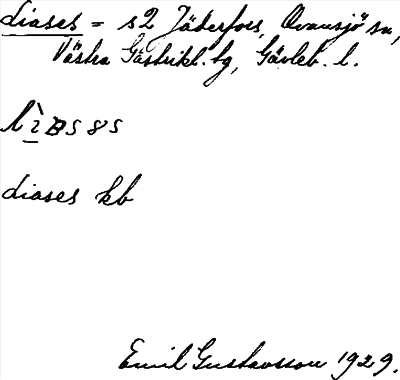 Liases = s 2 Jäderfors, Ovansjö sn,
Västra Gästrikl. tg, Gävleb. l.
Liases kb
Emil Gustavsson 1929.